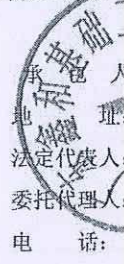 承 包 人
地 址:
法定代表人:
委托代理人:
电 话:
鑫和基础